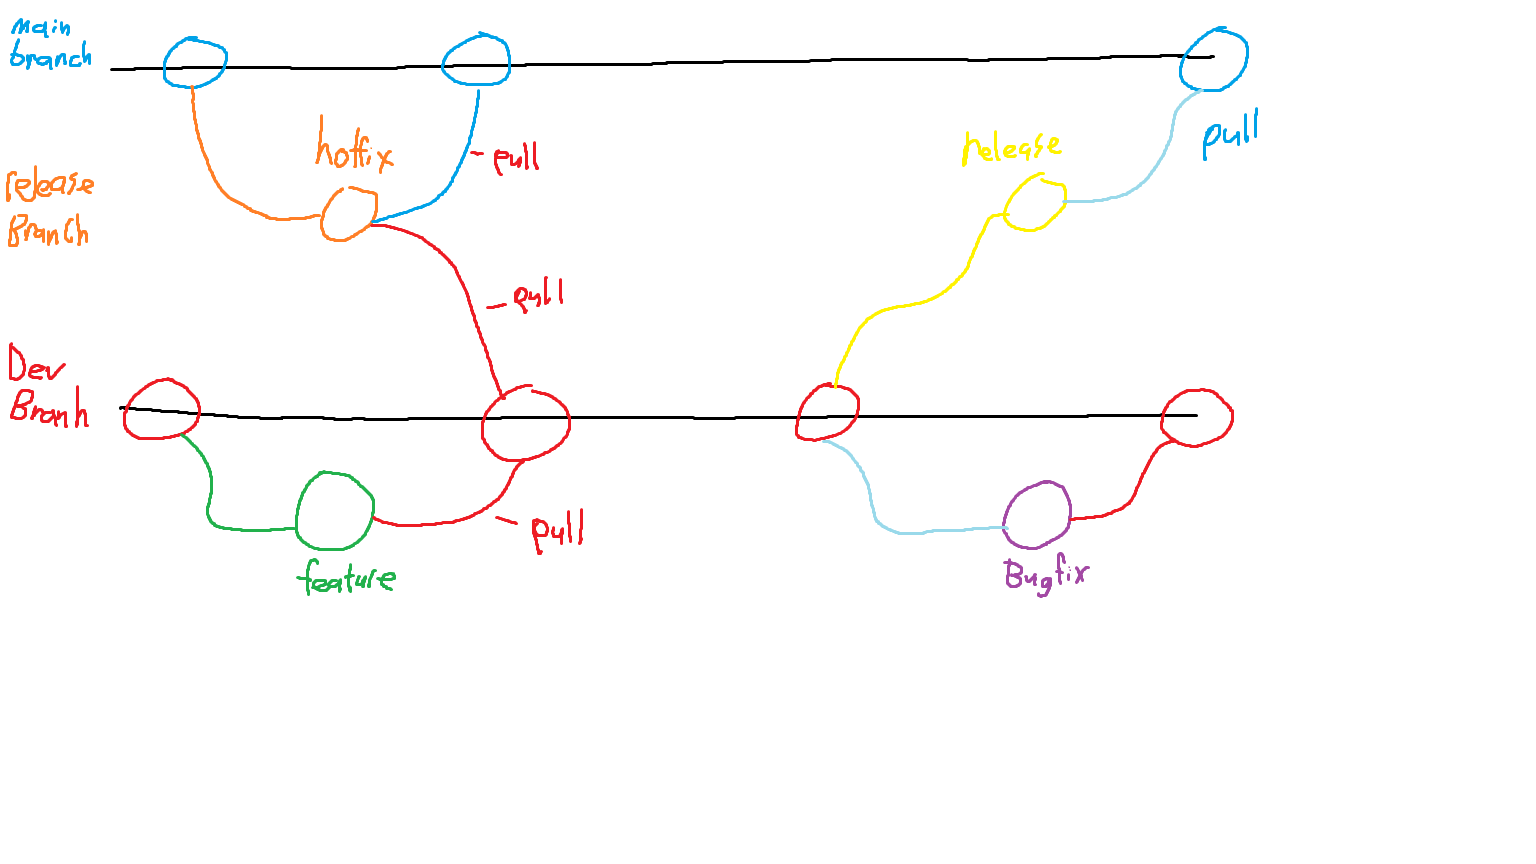 main
branch
hotfix
pull
release
pull
release
Branch
pull
Dev
Branh
pull
feature
Bugfix